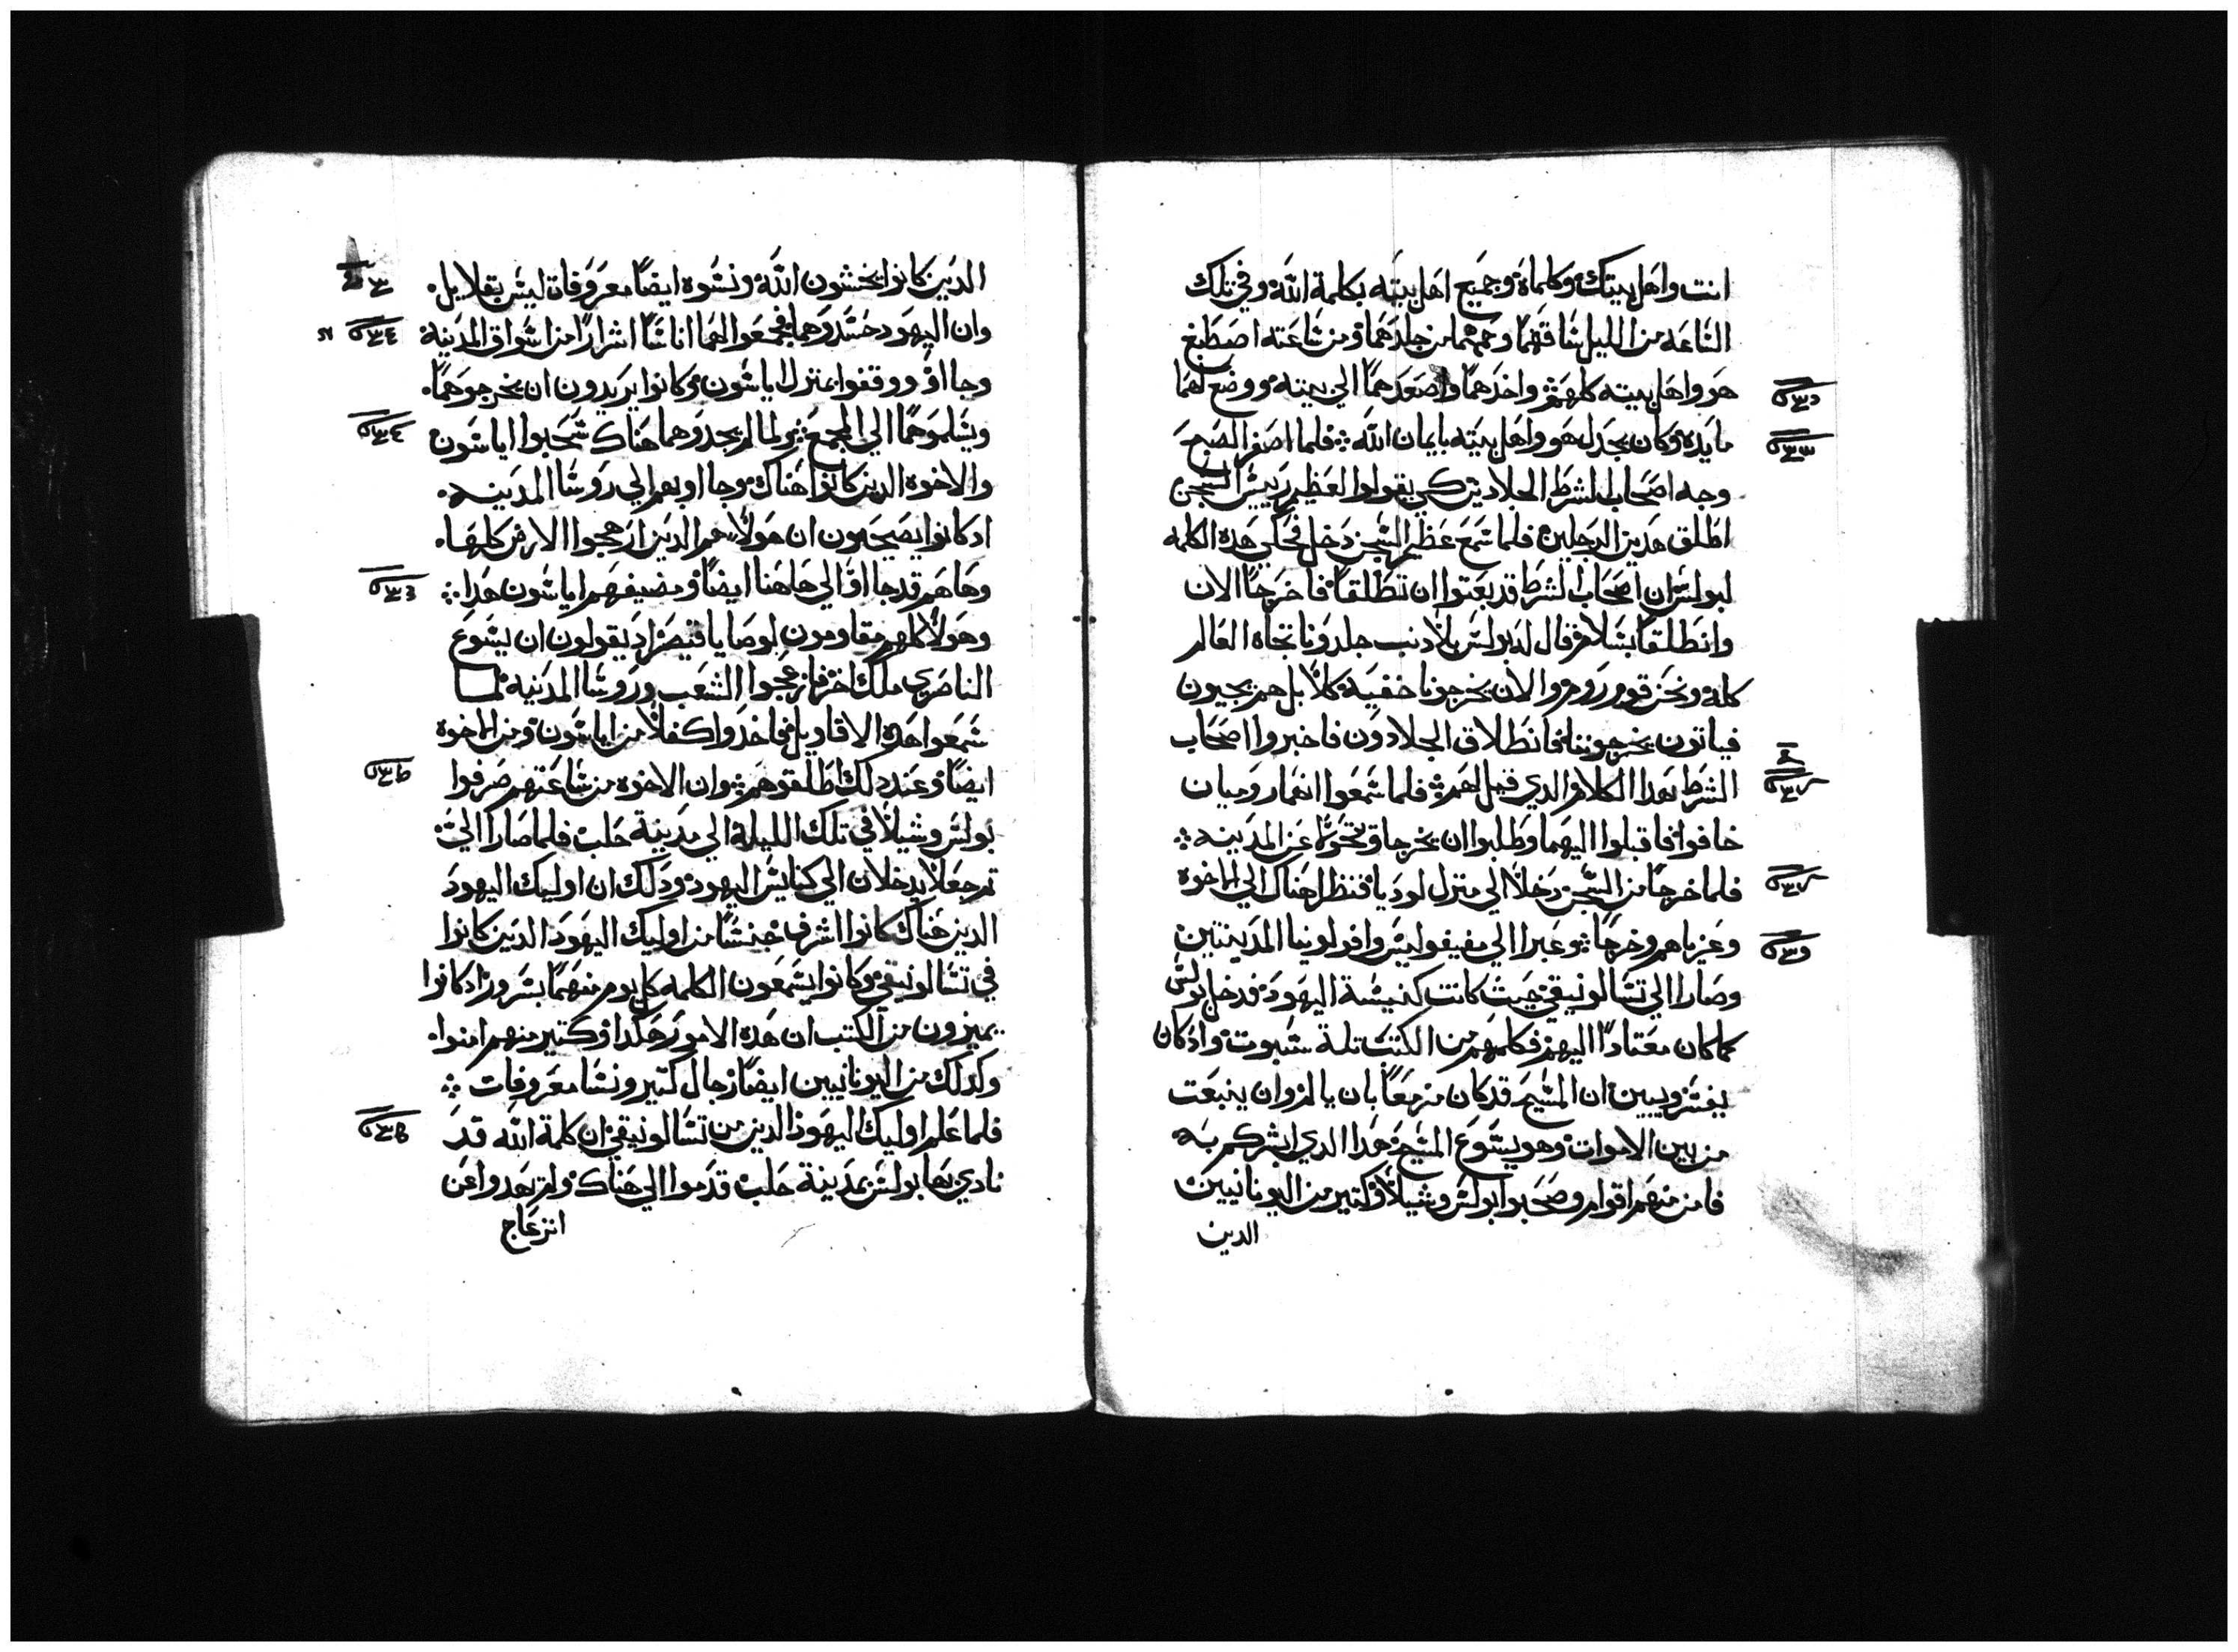 انت واهل بيتك وكلماه وجميع اهل بيته بكلمة الله وفي تلك
الساعه من الليل ساقهما وحمهما من جلدهما ومن ساعته اصطبغ
هو واهل بيته كلهم واخدهما واصعدهما الي بيته ووضع لهما
مايده وكان يجدل هو واهل بيته بايمان الله فلما اصفر الصبح
وجه اصحاب الشرط الجلادين كي يقولوا لعظيم رييس السجن
اطلق هدين الرجلين فلما سمع عظيم السجن دخل فحكي هده الكلمه
لبولس ان اصحاب الشرط قد بعتوا ان تطلقا فاخرجا الان
وانطلقا بسلام فقال له بولس بلا دنب جلدونا تجاه العالم
كله ونحن قوم روم والان يخرجونا خفيه كلا بل هم يجيون
فياتون يخرجوننا فانطلاق الجلادون فاخبروا اصحاب
الشرط بهدا الكلام الدي قيل لهم فلما سمعوا انهما روميان
خافوا فاقبلوا اليهما وطلبوا ان يخرجا ويتحولا عن المدينه
فلما خرجا من السجن دخلا الي منزل لوديا فنظرا هناك الي الاخوه
وعزياهم وخرجا وعبرا الي مفيفوليس وافولونيا المدينتين
وصارا الي تسالونيقي حيث كانت كنيسة اليهود فدخل بولس
كما كان معتادا اليهم فكلمهم من الكتب تلة سبوت وادكان
يفسر ويبين ان المسيح قد كان مزمعا بان يالم وان ينبعت
من بين الاموات وهو يسوع المسيح هدا الدي ابشركم به
فامن منهم اقوام وصحبوا بولس وشيلا وكتير من اليونانيين
الدين
الدين كانوا يخشون الله ونسوه ايضا معروفاة ليس بقلايل
وان اليهود حسدوهما فجمعوا لهما اناسا اشرارا من اسواق المدينه
وجااوا ووقفوا بمنزل اياسون وكانوا يريدون ان يخرجوهما
ويسلموهما الي المجمع ولما لم يجدوهما هناك سحبوا اياسون
والاخوه الدين كانوا هناك وجااوا بهم الي روسا المدينه
ادكانوا يصيحون ان هولا هم الدين ازعجوا الارض كلها
وهاهم قد جااوا الي هاهنا ايضا ومضيفهم اياسون هدا
وهولا كلهم مقاومون لوصايا قيصر اد يقولون ان يسوع
الناصري ملك اخر فازعجوا الشعب وروسا المدنيه لما
سمعوا هده الاقاويل فاخدوا كفلا من اياسون ومن الاخوه
ايضا وعند دلك اطلقوهم وان الاخوه من ساعتهم صرفوا
بولس وشيلا في تلك الليلة الي مدينة حلب فلما صارا الي تم
تم جعلا يدخلان الي كنايس اليهود ودلك ان اوليك اليهود
الدين هناك كانوا اشرف جنسا من اوليك اليهود الدين كانوا
في تسالونيقي وكانوا يسمعون الكلمه كل يوم منهما بسرور ادكانوا
يميزون من الكتب ان هده الامور هكدا وكتير منهم امنوا
وكدلك من اليونانيين ايضا رجال كتير ونسا معروفات
فلما علم اوليك اليهود الدين من تسالونيقي ان كلمة الله قد
نادي بها بولس بمدينة حلب قدموا الي هناك ولم يهدوا عن
انزعاج